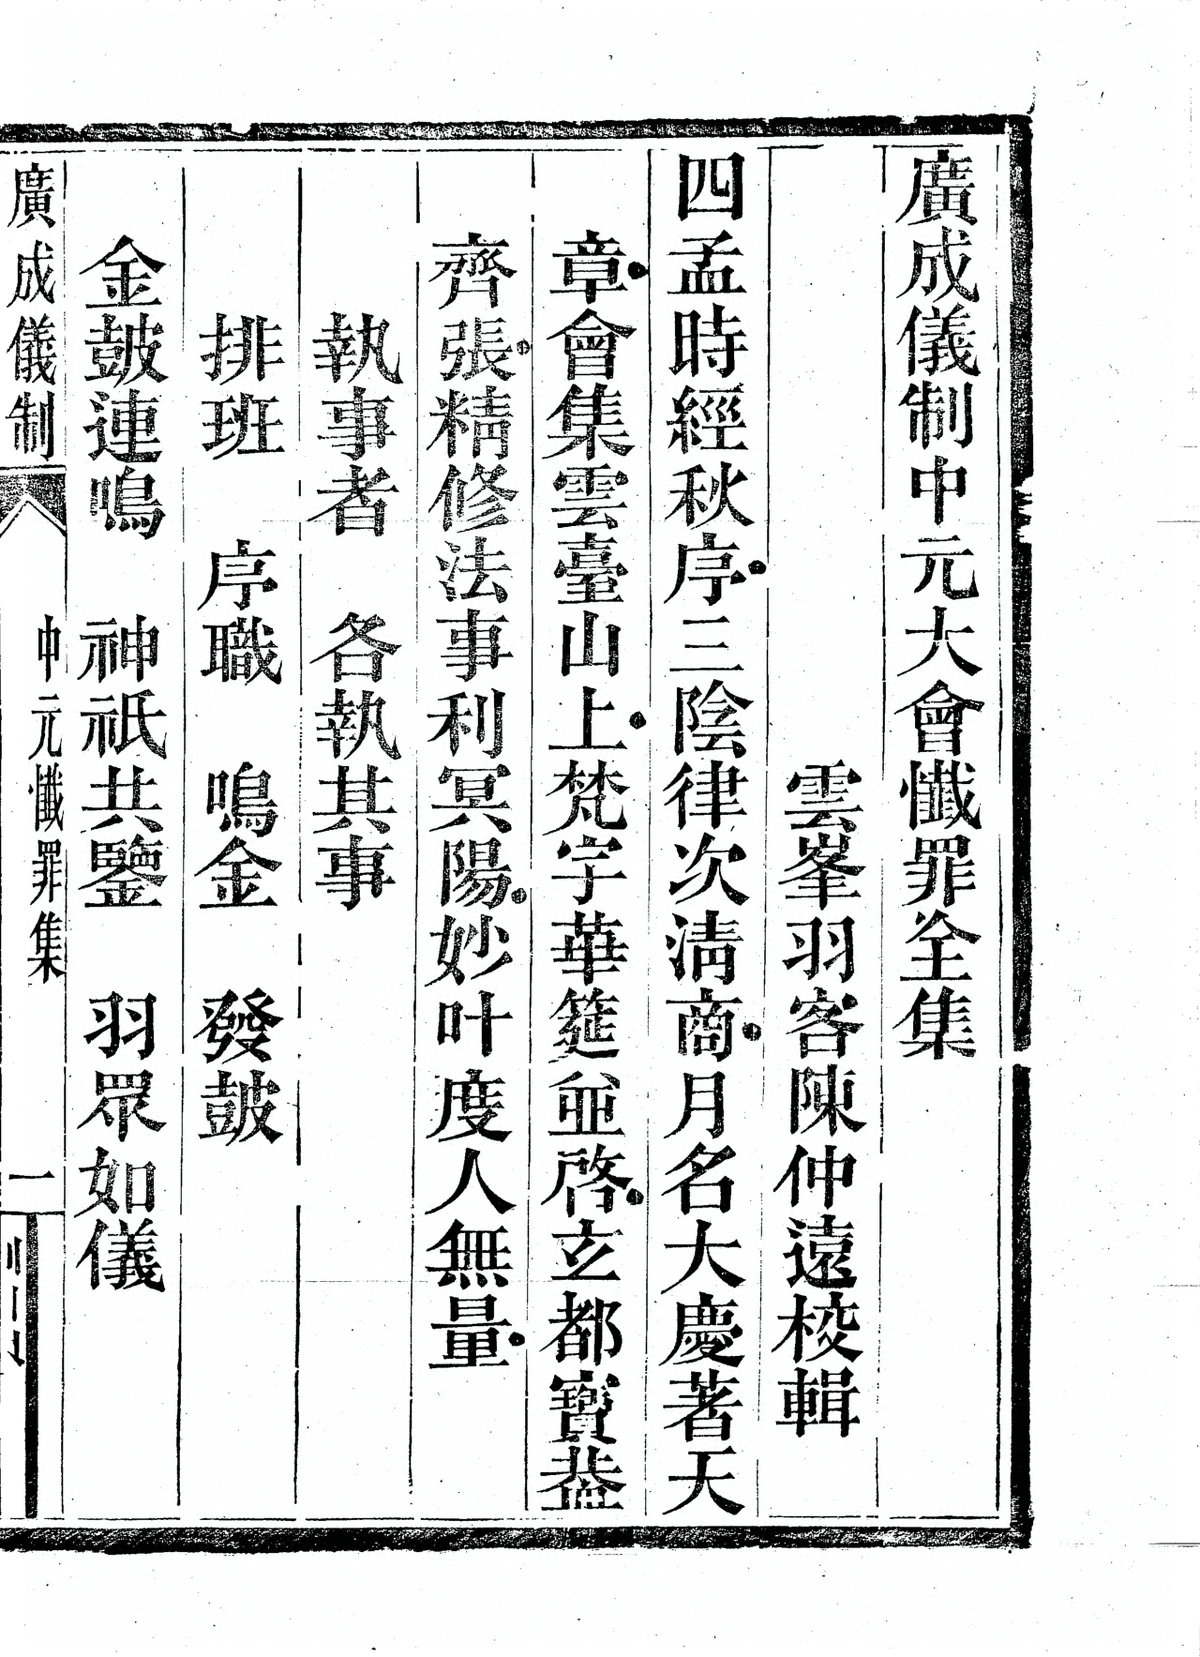 廣成儀制中元大會懺罪全集
雲峯羽客陳仲遠校輯
四孟時經秋序三陰律次清商月名大慶著天
章會集雲臺山上梵宇華筵並啓玄都寶葢
齊張精修法事利冥陽妙叶度人無量
執事者　各執其事
排班　序職　鳴金　發鼓
金鼓連鳴　神祇共鑒　羽眾如儀
廣成儀制　中元懺罪集　一